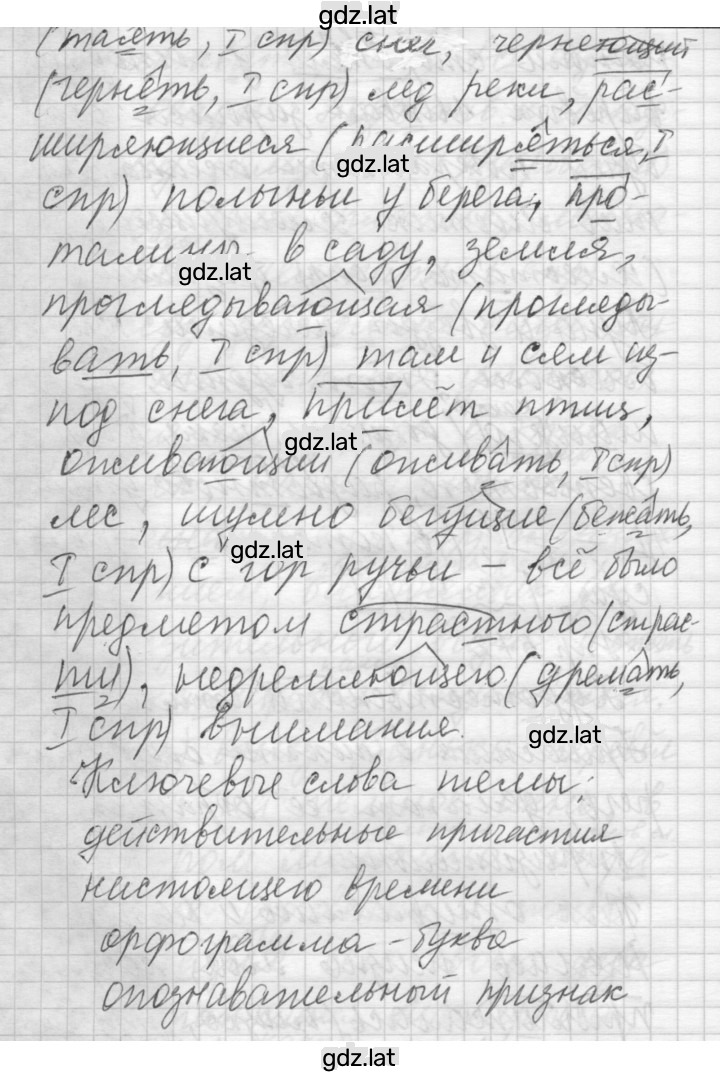 gdz.lat
(таять, I спр) снег, чернеющий
(чернеть, I спр) лед реки, рас-
ширяющиеся (расширяться, I
gdz.lat
спр) полыньи у берега, про-
талины в саду, земля,
gdz.lat
проглядывающая (прогляды-
вать, I спр) там и сям из-
под снега, прилёт птиц,
gdz.lat
оживающий (оживать, I спр)
лес, шумно бегущие (бежать,
gdz.lat
I спр) с гор ручьи – всё было
предметом страстного (страс-
ти), недремлющего (дремать,
I спр) внимания.
gdz.lat
Ключевые слова темы:
действительные причастия
настоящего времени
орфограмма – буква
опознавательный признак
gdz.lat